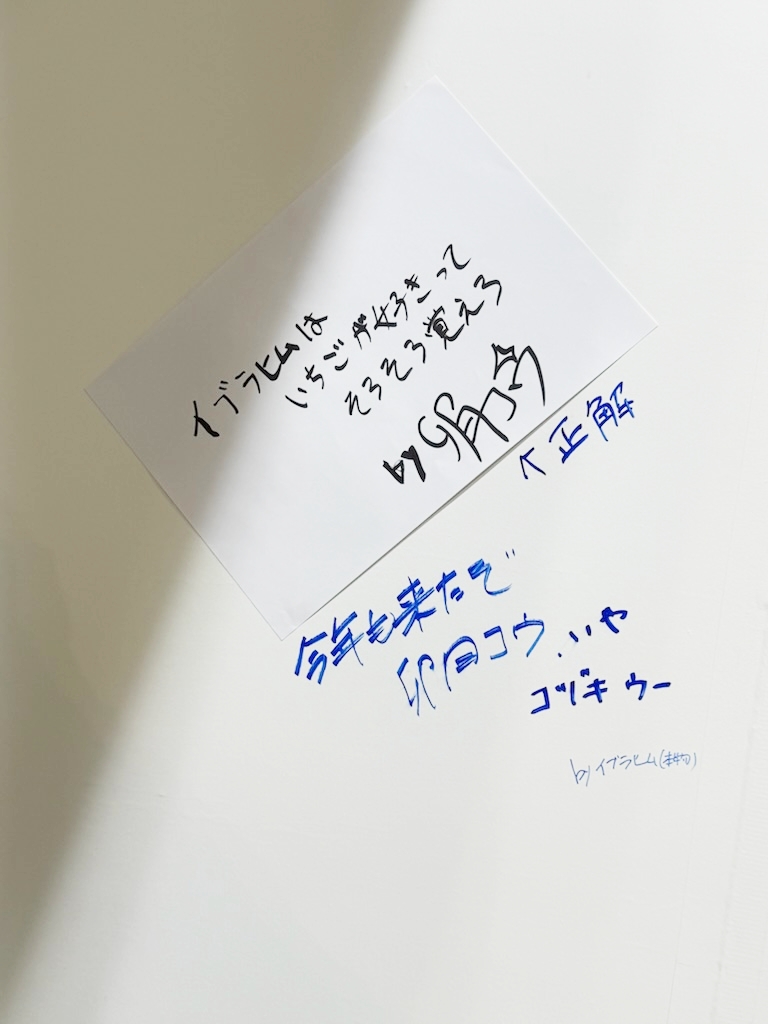 イブラヒムは
いちごが好きって
そろそろ覚えろ
by卯月コウ
↖正解
今年も来たぞ
卯月コウ..いや
コヅキウー
byイブラヒム(本物)